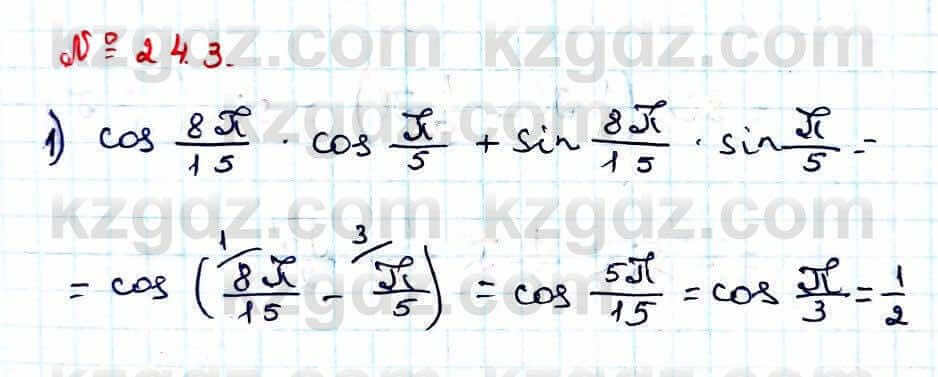 № 24.3.
1) cos 8π/15 · cos π/5 + sin 8π/15 · sin π/5 =
= cos (8π/15 (1 − π/5 (3) = cos 5π/15 = cos π/3 = 1/2
kzgdz.com kzgdz.com
kzgdz.com kzgdz.com
kzgdz.com kzgdz.com